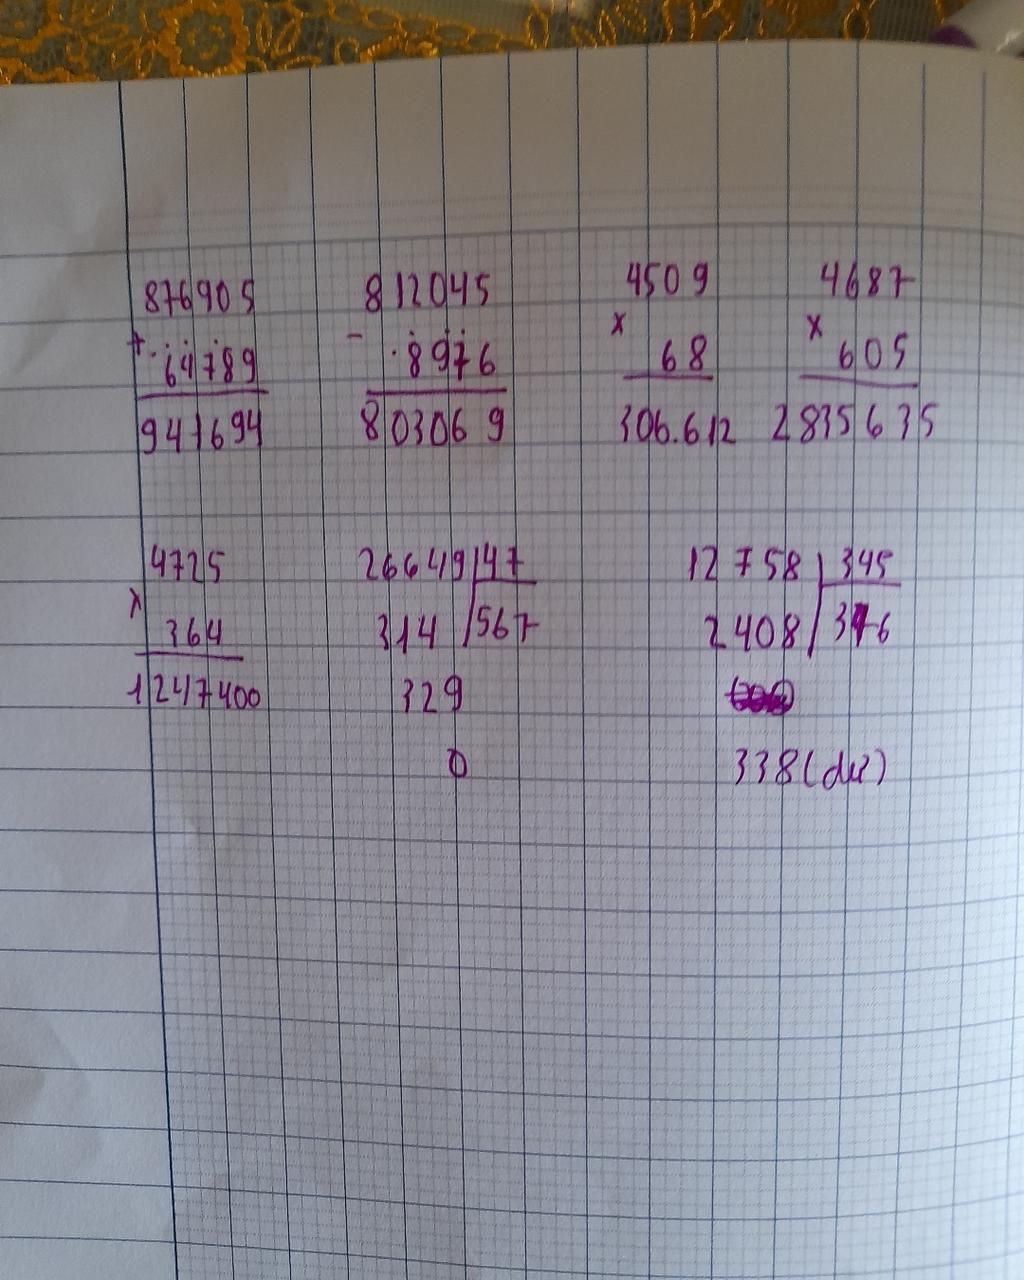 876905 812045 4509 4687
+ 64789 - 8976 x 68 x 605
941694 803069 306.612 2835635
4725 26649 47 12758 345
x 364 314 567 2408 376
1247400 329
0 338(dư)